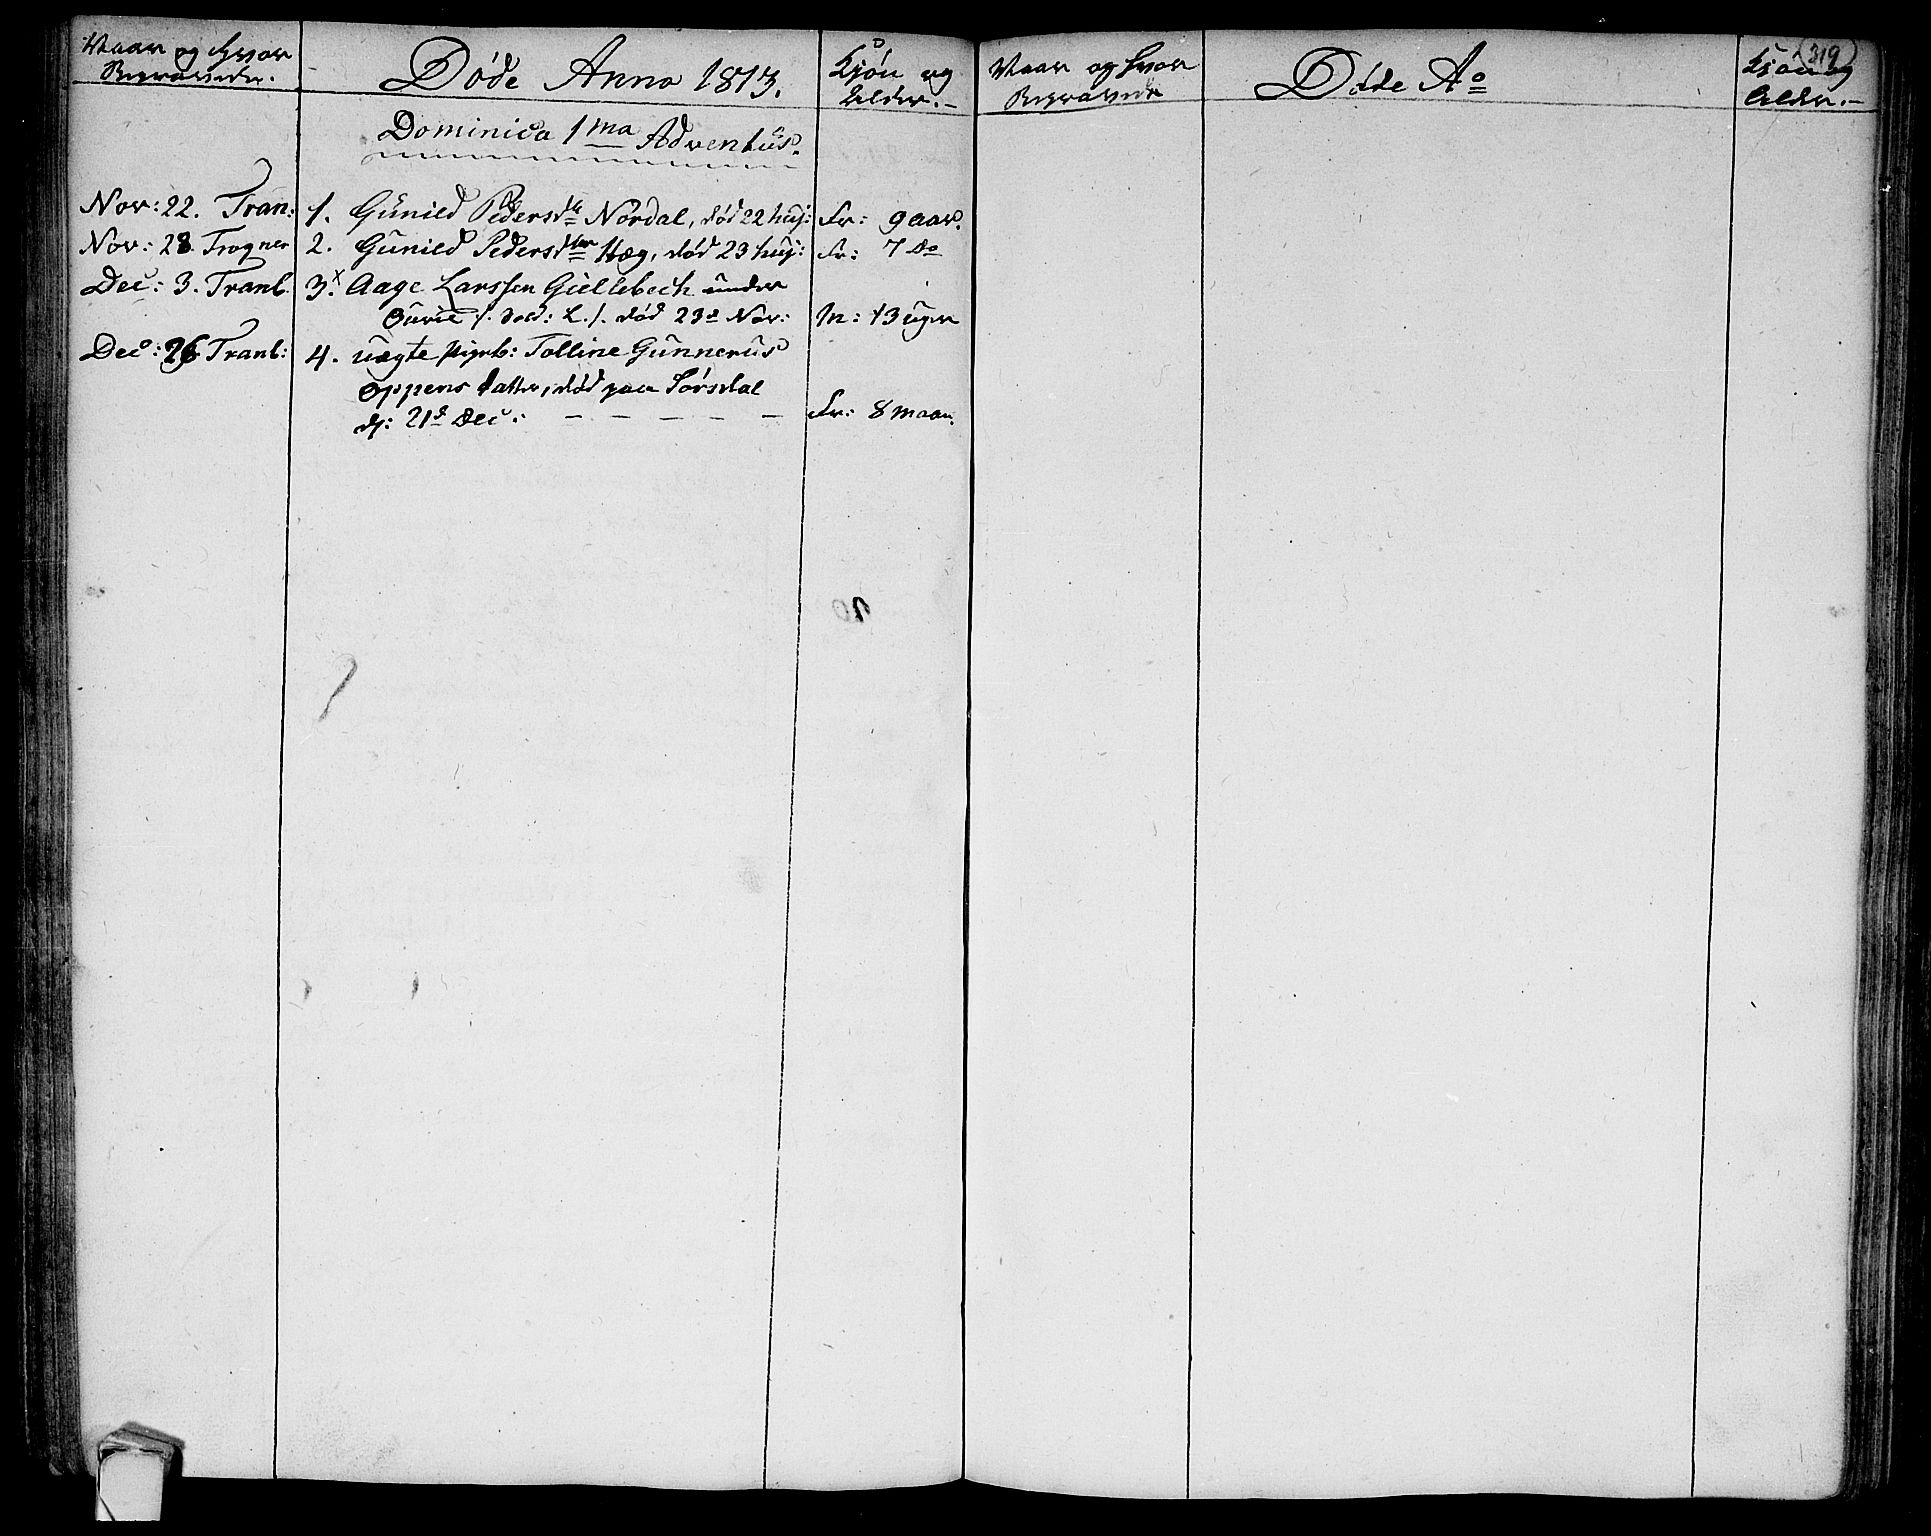 Naar og hvor
Begravede.
Døde Anno 1813.
Kjøn og
Alder.-
Dominica 1ma Adventus.
Nov: 22. Tran: 1. Gunild Pedersdtr Nordal, død 22 huj: Fr: 9 aar.
Nov: 28. Trogner 2. Gunild Pedersdtr Hæg, død 23 huj: Fr: 7 Do
Dec: 3. Tranb. 3.x Aage Larssen Giellebech under
Ourie /. Sold: L./. død 23d Nov: M: 13 uger
Dec: 26 Tranb: 4. uægte Pigeb: Tolline Gunnerus
Oppens datter, død paa Sørsdal
d: 21d Dec: - - - - - Fr: 8 maan.
Naar og hvor
Begravede
Døde Ao
Kjøn og
Alder.-
(319)